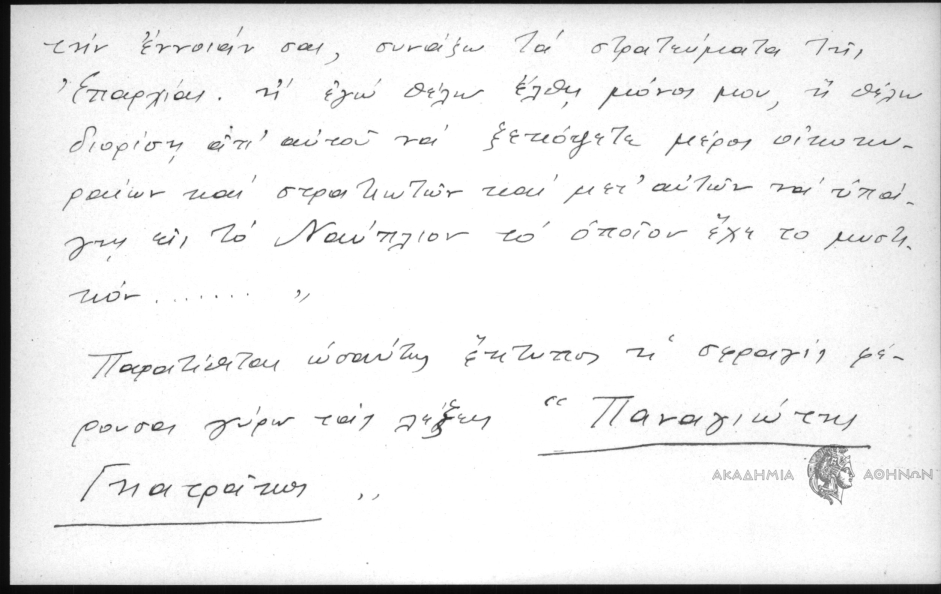 τήν ἔννοιάν σας, συνάξω τά στρατεύματα τῆς
Ἐπαρχίας. ἤ ἐγώ θέλω ἔλθῃ μόνος μου, ἤ θέλω
διορίσῃ ἀπ' αὐτοῦ νά ξεκόψετε μέρος οἰκοκυ-
ραίων καί στρατιωτῶν καί μετ' αὐτῶν νά ὑπά-
γῃς εἰς τό Ναύπλιον τό ὁποῖον ἔχε το μυστι-
κόν ........ "
Παρατίθεται ὡσαύτως ἔκτυπος ἡ σφραγίς φέ-
ρουσα γύρω τάς λέξεις " Παναγιώτης
Γιατράκος "
ΑΚΑΔΗΜΙΑ ΑΘΗΝΩΝ